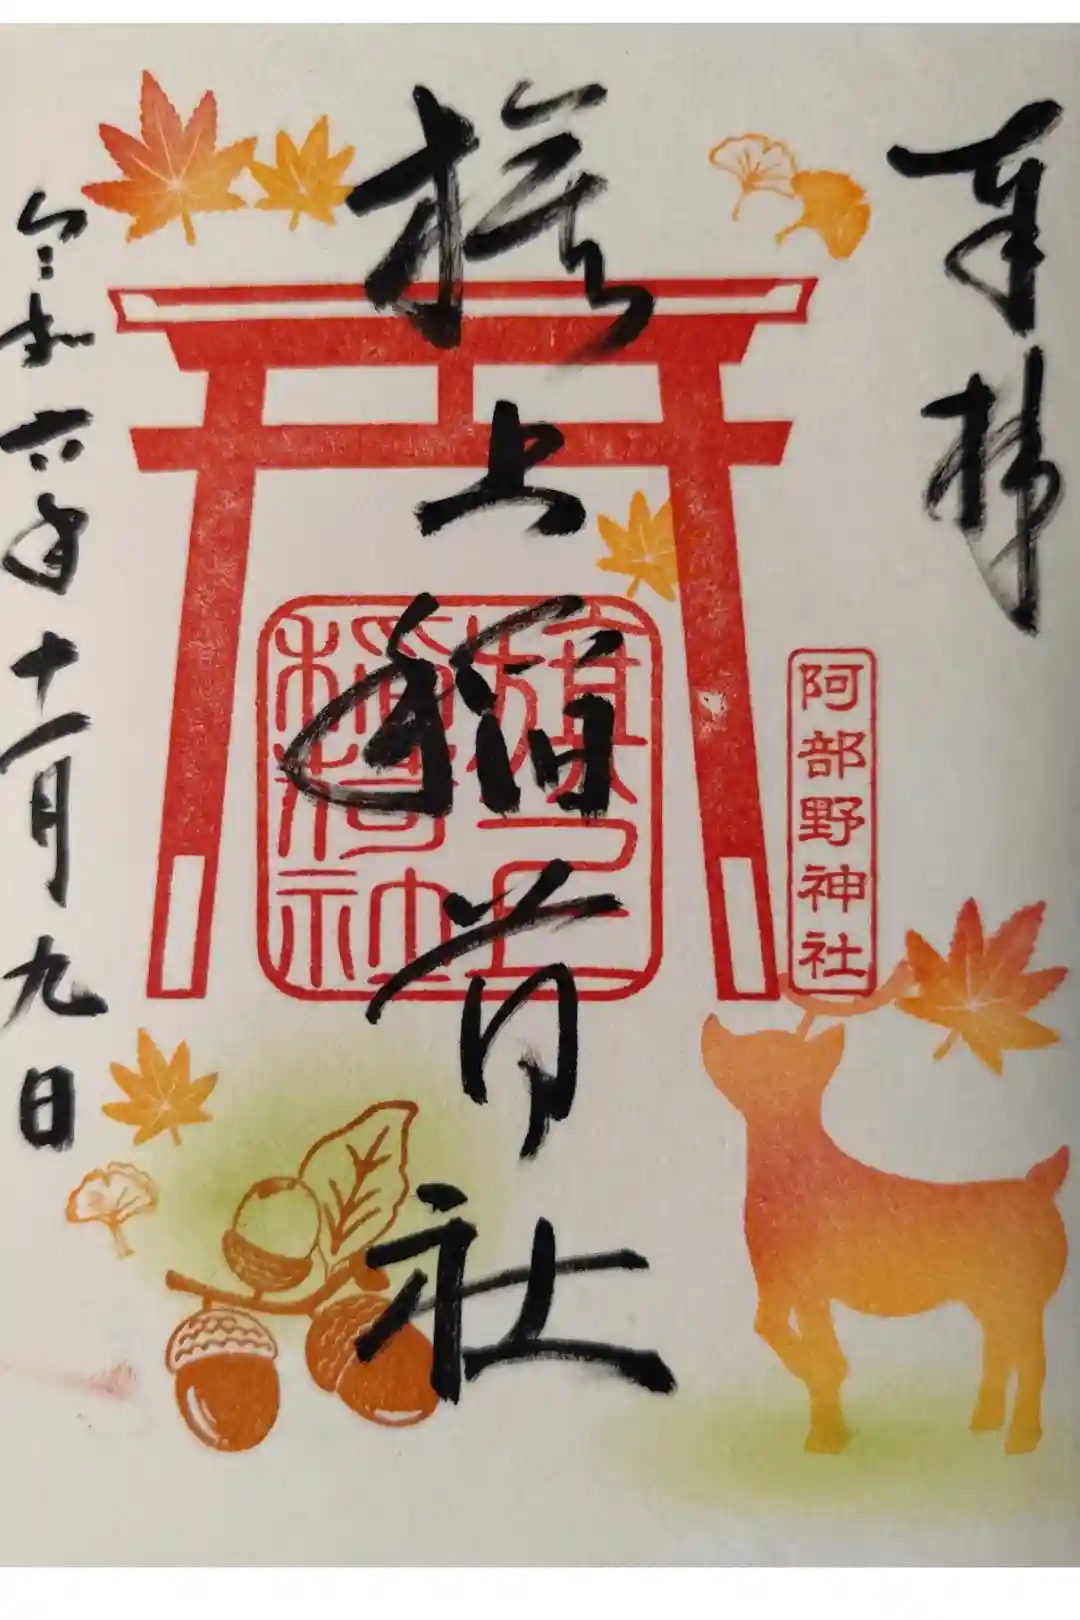 奉拝
阿部野神社
旗上稲荷社
旗上
稲荷社
令和六年十一月九日